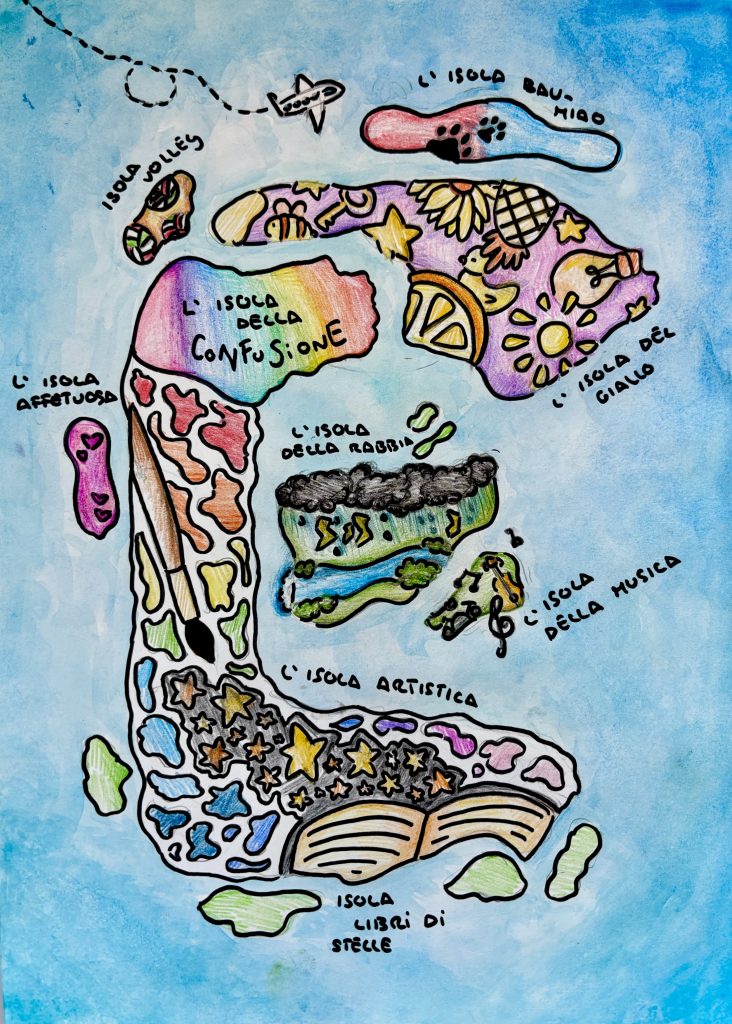 L' ISOLA BAU-
MIAO
ISOLA
VOLLEY
L' ISOLA
DELLA
CONFUSIONE
L' ISOLA DEL
GIALLO
L' ISOLA
AFFETUOSA
L' ISOLA
DELLA RABBIA
L' ISOLA
DELLA MUSICA
L' ISOLA ARTISTICA
ISOLA
LIBRI DI
STELLE